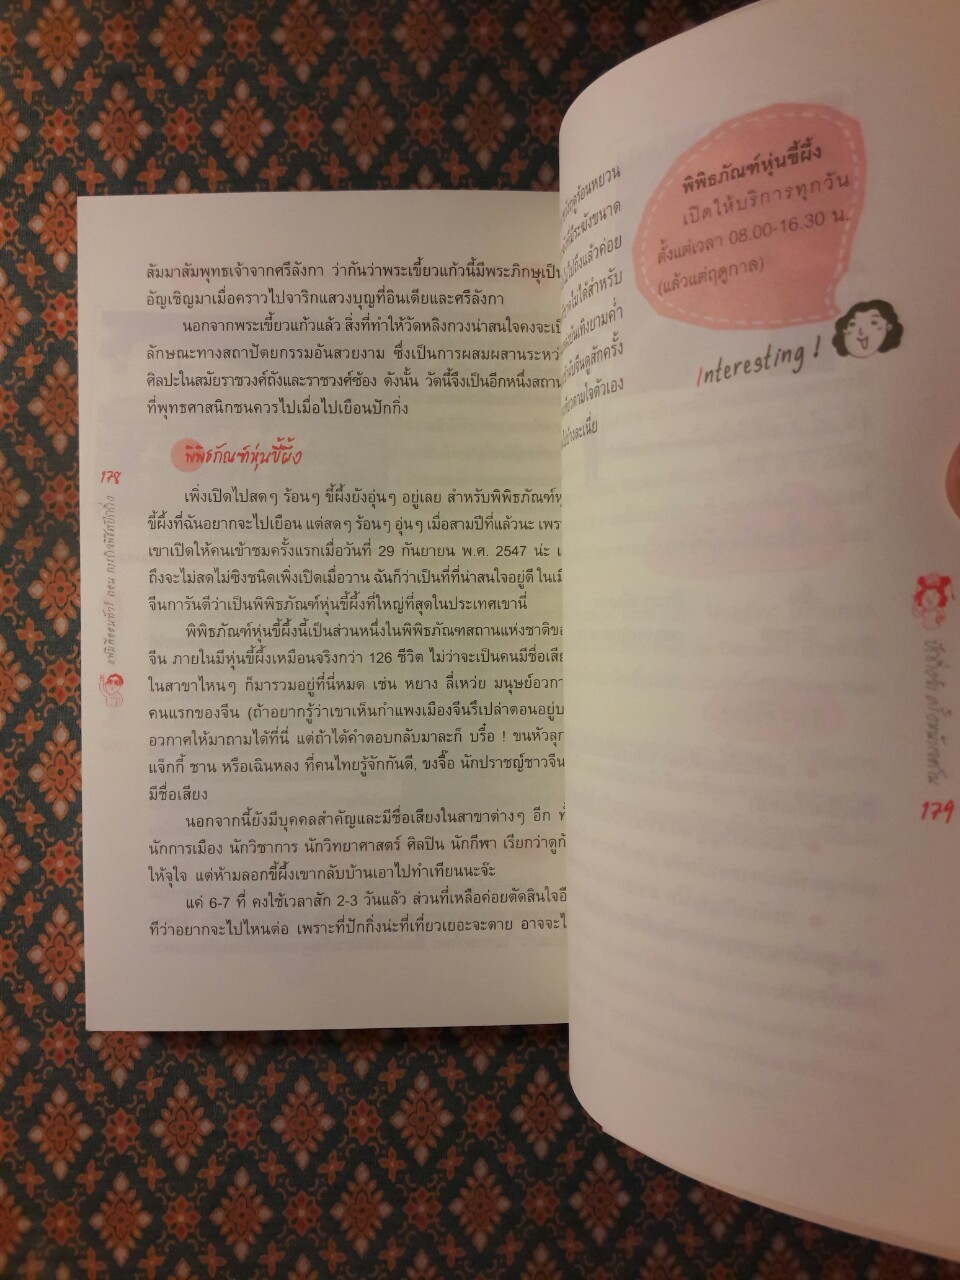 สัมมาสัมพุทธเจ้าจากศรีลังกา ว่ากันว่าพระเขี้ยวแก้วนี้มีพระภิกษุเป็น
อัญเชิญมาเมื่อคราวไปจาริกแสวงบุญที่อินเดียและศรีลังกา
นอกจากพระเขี้ยวแก้วแล้ว สิ่งที่ทำให้วัดหลิงกวงน่าสนใจคงจะเป็
ลักษณะทางสถาปัตยกรรมอันสวยงาม ซึ่งเป็นการผสมผสานระหว่
ศิลปะในสมัยราชวงศ์ถังและราชวงศ์ซ้อง ดังนั้น วัดนี้จึงเป็นอีกหนึ่งสถาน
ที่พุทธศาสนิกชนควรไปเมื่อไปเยือนปักกิ่ง
พิพิธภัณฑ์หุ่นขี้ผึ้ง
เพิ่งเปิดไปสดๆ ร้อนๆ ขี้ผึ้งยังอุ่นๆ อยู่เลย สำหรับพิพิธภัณฑ์หุ
ขี้ผึ้งที่ฉันอยากจะไปเยือน แต่สดๆ ร้อนๆ อุ่นๆ เมื่อสามปีที่แล้วนะ เพรา
เขาเปิดให้คนเข้าชมครั้งแรกเมื่อวันที่ 29 กันยายน พ.ศ. 2547 น่ะ แ
ถึงจะไม่สดไม่ซิงชนิดเพิ่งเปิดเมื่อวาน ฉันก็ว่าเป็นที่ที่น่าสนใจอยู่ดี ในเมื
จีนการันตีว่าเป็นพิพิธภัณฑ์หุ่นขี้ผึ้งที่ใหญ่ที่สุดในประเทศเขานี่
พิพิธภัณฑ์หุ่นขี้ผึ้งนี้เป็นส่วนหนึ่งในพิพิธภัณฑสถานแห่งชาติขอ
จีน ภายในมีหุ่นขี้ผึ้งเหมือนจริงกว่า 126 ชีวิต ไม่ว่าจะเป็นคนมีชื่อเสีย
ในสาขาไหนๆ ก็มารวมอยู่ที่นี่หมด เช่น หยาง ลี่เหว่ย มนุษย์อวกา
คนแรกของจีน (ถ้าอยากรู้ว่าเขาเห็นกำแพงเมืองจีนรึเปล่าตอนอยู่บ
อวกาศให้มาถามได้ที่นี่ แต่ถ้าได้คำตอบกลับมาละก็ บรื๋อ ! ขนหัวลุก
แจ็กกี้ ชาน หรือเฉินหลง ที่คนไทยรู้จักกันดี, ขงจื๊อ นักปราชญ์ชาวจีน
มีชื่อเสียง
นอกจากนี้ยังมีบุคคลสำคัญและมีชื่อเสียงในสาขาต่างๆ อีก ทั้
นักการเมือง นักวิชาการ นักวิทยาศาสตร์ ศิลปิน นักกีฬา เรียกว่าดูกั
ให้จุใจ แต่ห้ามลอกขี้ผึ้งเขากลับบ้านเอาไปทำเทียนนะจ๊ะ
แค่ 6-7 ที่ คงใช้เวลาสัก 2-3 วันแล้ว ส่วนที่เหลือค่อยตัดสินใจอี
ทีว่าอยากจะไปไหนต่อ เพราะที่ปักกิ่งน่ะที่เที่ยวเยอะจะตาย อาจจะไ
178
พิพิธภัณฑ์หุ่นขี้ผึ้ง
เปิดให้บริการทุกวัน
ตั้งแต่เวลา 08.00-16.30 น.
(แล้วแต่ฤดูกาล)
Interesting !
ฤดูร้อนหยวน
มีระฆังขนาด
ไปถึงแล้วค่อย
ไม่ได้สำหรับ
บันเทิงยามค่ำ
จีนดูสักครั้ง
ตามใจตัวเอง
ล่ะเนี่ย
179